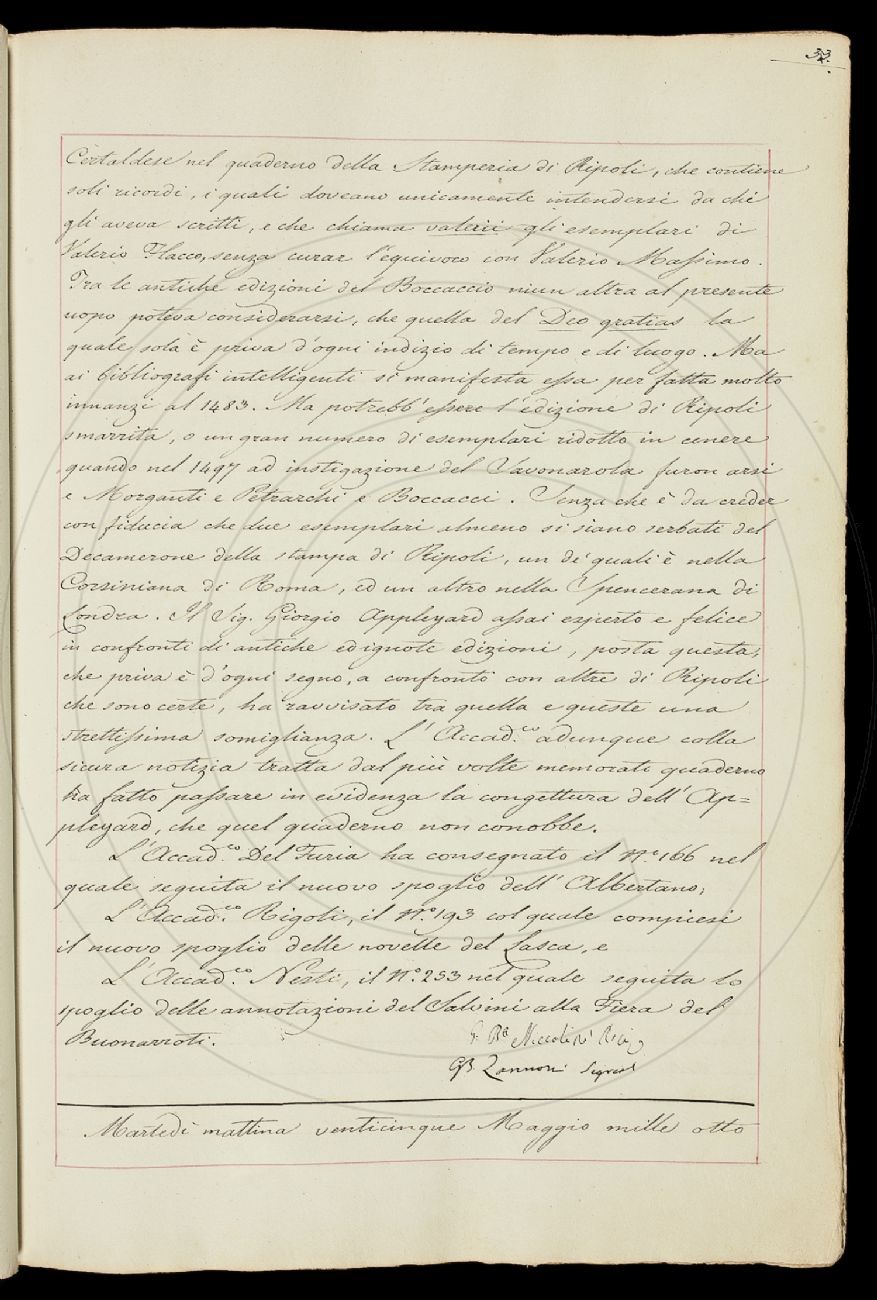 33.
Certaldese nel quaderno della Stamperia di Ripoli, che contiene
soli ricordi, i quali doveano unicamente intendersi da chi
gli aveva scritti, e che chiama valerii gli esemplari di
Valerio Flacco, senza curar l'equivoco con Valerio Massimo.
Tra le antiche edizioni del Boccaccio niun altra al presente
uopo poteva considerarsi, che quella del Deo gratias la
quale sola è priva d'ogni indizio di tempo e di luogo. Ma
ai bibliografi intelligenti si manifesta essa per fatta molto
innanzi al 1483. Ma potrebb'essere l'edizione di Ripoli
smarrita, o un gran numero di esemplari ridotto in cenere
quando nel 1497 ad instigazione del Savonarola furon arsi
e Morganti e Petrarchi e Boccacci. Senza che è da creder
con fiducia che due esemplari almeno si siano serbati del
Decamerone della stampa di Ripoli, un de' quali è nella
Corsiniana di Roma, ed un altro nella Spencerana di
Londra. Il Sig. Giorgio Appleyard assai esperto e felice
in confronti di antiche ed ignote edizioni, posta questa,
che priva è d'ogni segno, a confronto con altre di Ripoli
che sono certe, ha ravvisato tra quella e queste una
strettissima somiglianza. L'Accad.co adunque colla
sicura notizia tratta dal più volte memorato quaderno
ha fatto passare in evidenza la congettura dell'Ap=
pleyard, che quel quaderno non conobbe.
L'Accad.co Del Furia ha consegnato il N.o 166 nel
quale seguita il nuovo spoglio dell'Albertano;
L'Accad.co Rigoli, il N.o 193 col quale compiesi
il nuovo spoglio delle novelle del Lasca, e
L'Accad.co Nesti, il N.o 253 nel quale seguita lo
spoglio delle annotazioni del Salvini alla Fiera del
Buonarroti.
G. Bª Niccolini
GB. Zannoni Segret
Martedì mattina venticinque Maggio mille otto